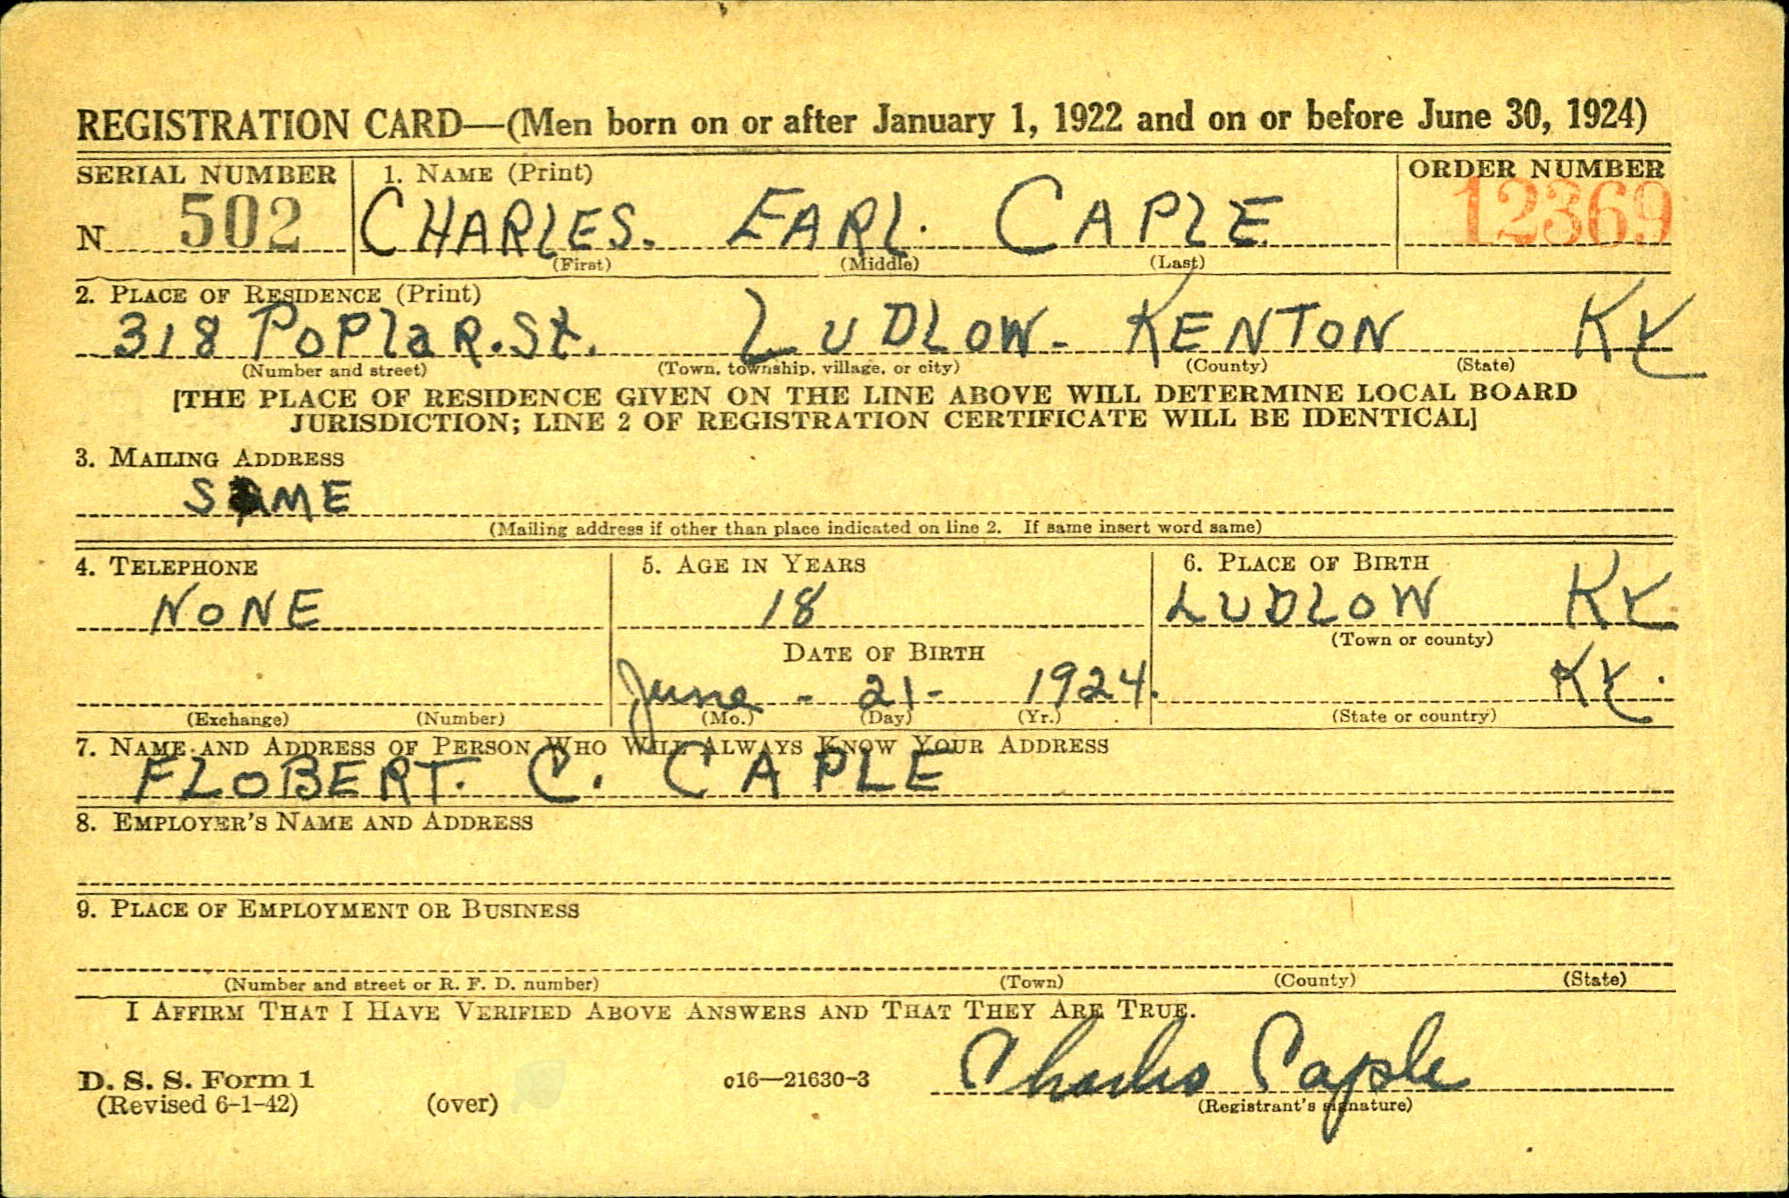 REGISTRATION CARD—(Men born on or after January 1, 1922 and on or before June 30, 1924)
SERIAL NUMBER 1. NAME (Print) ORDER NUMBER
N 502 CHARLES. EARL. CAPLE 12369
(First) (Middle) (Last)
2. PLACE OF RESIDENCE (Print)
318 POPlaR. St. LUDLOW- KENTON KY
(Number and street) (Town, township, village, or city) (County) (State)
[THE PLACE OF RESIDENCE GIVEN ON THE LINE ABOVE WILL DETERMINE LOCAL BOARD
JURISDICTION; LINE 2 OF REGISTRATION CERTIFICATE WILL BE IDENTICAL]
3. MAILING ADDRESS
SAME
(Mailing address if other than place indicated on line 2. If same insert word same)
4. TELEPHONE 5. AGE IN YEARS 6. PLACE OF BIRTH
NONE 18 LUDLOW KY.
DATE OF BIRTH (Town or county)
June - 21 - 1924. KY.
(Exchange) (Number) (Mo.) (Day) (Yr.) (State or country)
7. NAME AND ADDRESS OF PERSON WHO WILL ALWAYS KNOW YOUR ADDRESS
FLOBERT. C. CAPLE
8. EMPLOYER'S NAME AND ADDRESS
9. PLACE OF EMPLOYMENT OR BUSINESS
(Number and street or R. F. D. number) (Town) (County) (State)
I AFFIRM THAT I HAVE VERIFIED ABOVE ANSWERS AND THAT THEY ARE TRUE.
D. S. S. Form 1 c16—21630-3 Charles Caple
(Revised 6-1-42) (over) (Registrant's signature)